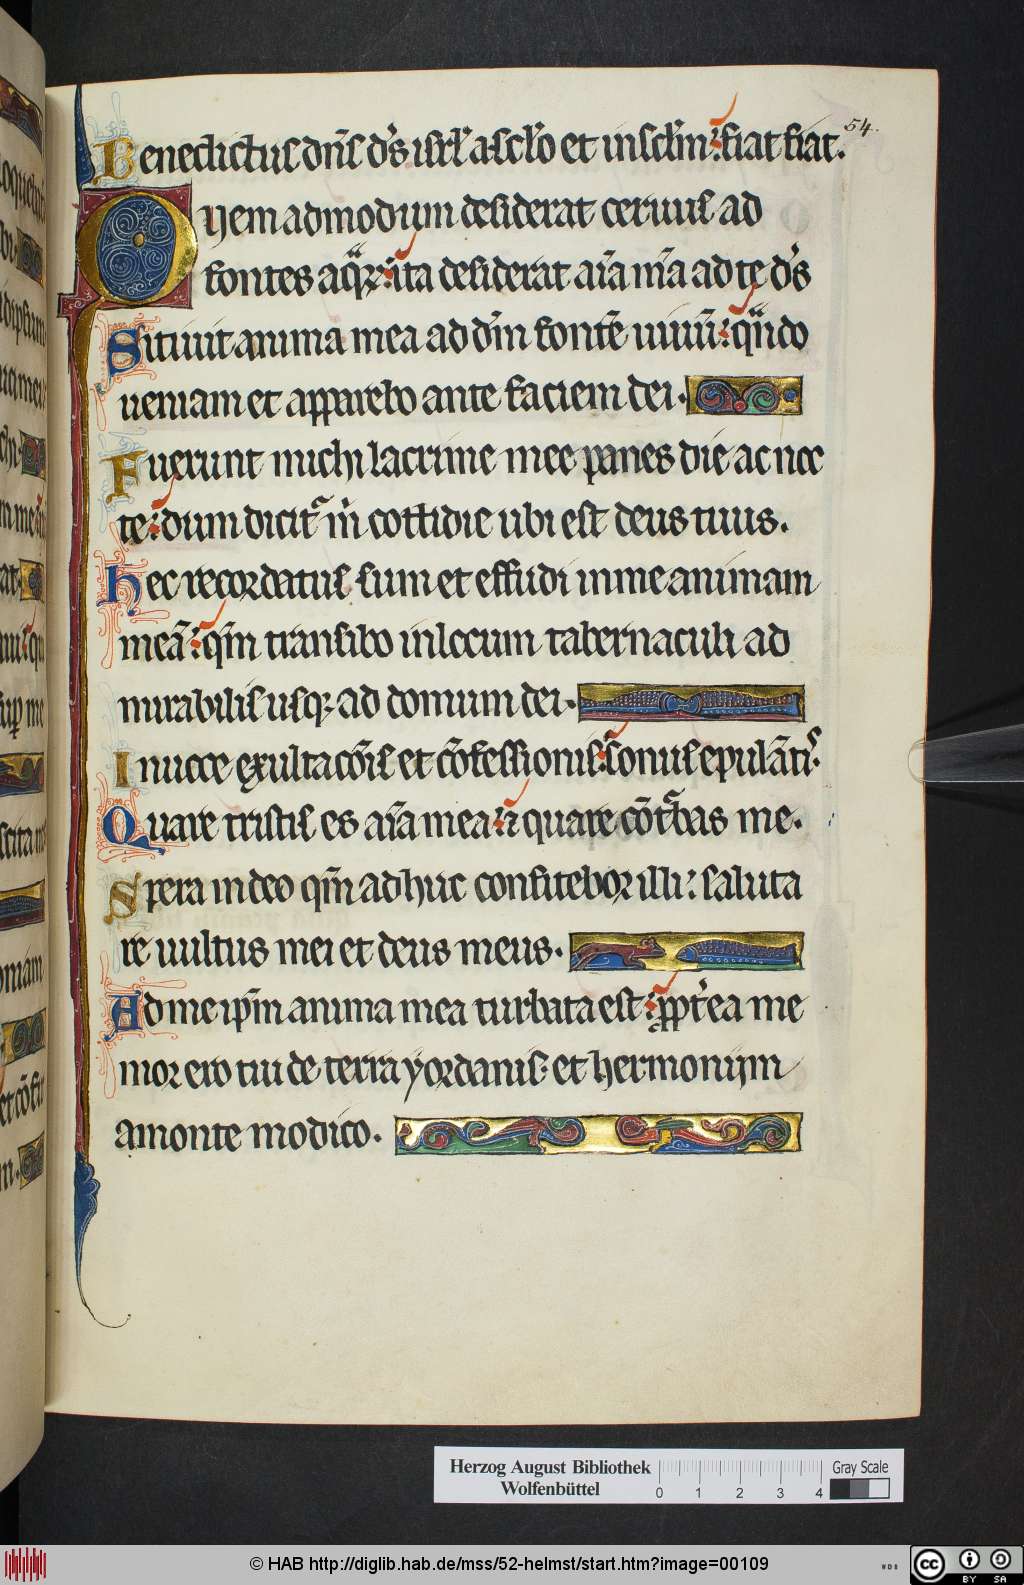 54.
Benedictus dn̄s d̄s isrl̄ a sc̄lo et in sc̄lm̄ : fiat fiat.
Quem admodum desiderat ceruus ad
fontes aq̄ꝝ : ita desiderat aīa m̄a ad te d̄s
Sitiuit anima mea ad dm̄ fontē uiuū : qn̄do
ueniam et apparebo ante faciem dei.
Fuerunt michi lacrime mee panes die ac noc
te : dum dicit᷑ m̄ cottidie ubi est deus tuus.
hec recordatus sum et effudi in me animam
meā : qm̄ transibo in locum tabernaculi ad
mirabilis usqꝫ ad domum dei.
in uoce exultacōis et cōfessionis : sonus epulāti.
Quare tristis es aīa mea : ⁊ quare cōt᷑bas me.
Spera in deo qm̄ adhuc confitebor illi : saluta
re uultus mei et deus meus.
Ad me ip̄m anima mea turbata est : ꝓpt̄ea me
mor ero tui de terra yordanis et hermonijm
a monte modico.
Herzog August Bibliothek
Wolfenbüttel
Gray Scale
0 1 2 3 4
© HAB http://diglib.hab.de/mss/52-helmst/start.htm?image=00109
WDB
cc BY SA